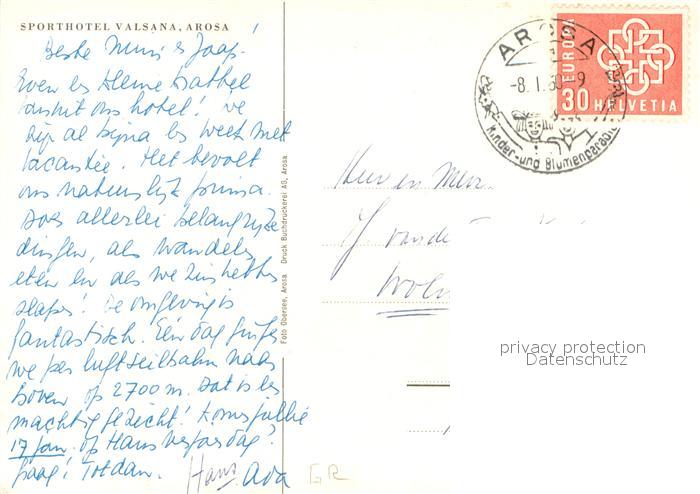 SPORTHOTEL VALSANA, AROSA
Beste Muis & Jaap!
Even 'n kleine krabbel
vanuit ons hotel! We
zijn al bijna 1 week met
vacantie. Het bevalt
ons natuurlijk prima.
Doe allerlei belangrijke
dingen, als wandelen
eten en als we zin hebben
slapen! De omgeving is
fantastisch. Eén dag gingen
we per luftseilbahn naar
boven op 2700 m. Dat is een
machtig gezicht! Komen jullie
17 jan. op Hans verjaardag?
Graag! Tot dan.
Hans Ada
GR
Foto Obersee, Arosa Druck Buchdruckerei AG, Arosa
AROSA
-8.I.60-9
Kinder- und Blumenparadies
EUROPA
30 HELVETIA
Heer en Mevr.
J. van de
privacy protection
Datenschutz